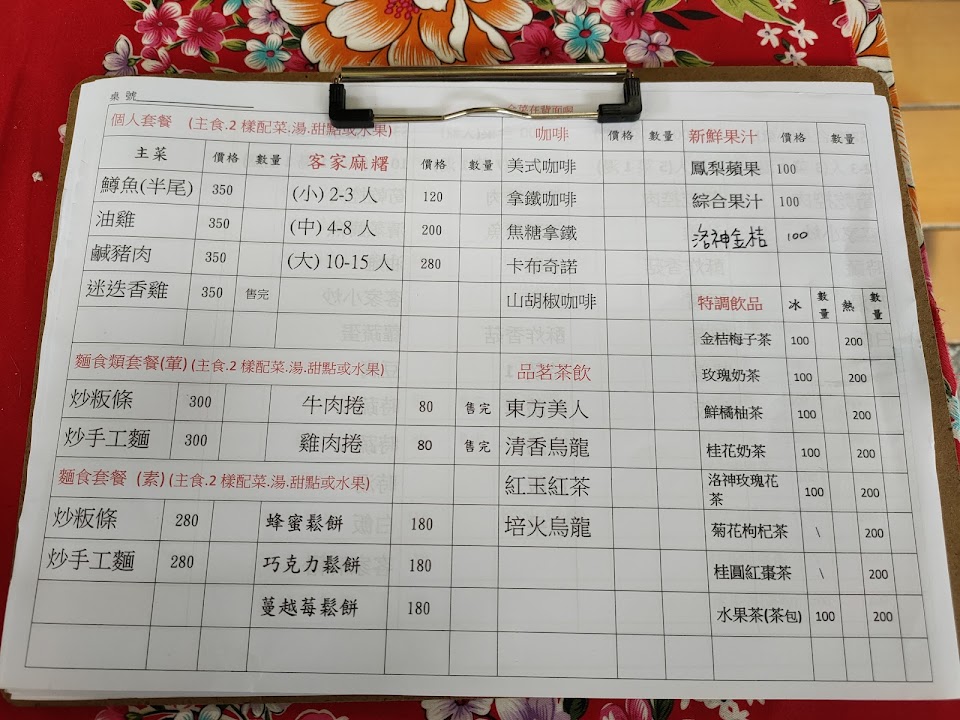 桌號
合菜在背面喔
個人套餐 (主食.2 樣配菜.湯.甜點或水果) 咖啡 價格 數量 新鮮果汁 價格 數量
主菜 價格 數量 客家麻糬 價格 數量 美式咖啡 鳳梨蘋果 100
鱒魚(半尾) 350 (小) 2-3 人 120 拿鐵咖啡 綜合果汁 100
油雞 350 (中) 4-8 人 200 焦糖拿鐵 洛神金桔 100
鹹豬肉 350 (大) 10-15 人 280 卡布奇諾
迷迭香雞 350 售完 山胡椒咖啡 特調飲品 冰 數量 熱 數量
金桔梅子茶 100 200
麵食類套餐(葷) (主食.2 樣配菜.湯.甜點或水果) 品茗茶飲 玫瑰奶茶 100 200
炒粄條 300 牛肉捲 80 售完 東方美人 鮮橘柚茶 100 200
炒手工麵 300 雞肉捲 80 售完 清香烏龍 桂花奶茶 100 200
麵食套餐 (素) (主食.2 樣配菜.湯.甜點或水果) 紅玉紅茶 洛神玫瑰花茶 100 200
炒粄條 280 蜂蜜鬆餅 180 培火烏龍 菊花枸杞茶 \ 200
炒手工麵 280 巧克力鬆餅 180 桂圓紅棗茶 \ 200
蔓越莓鬆餅 180 水果茶(茶包) 100 200